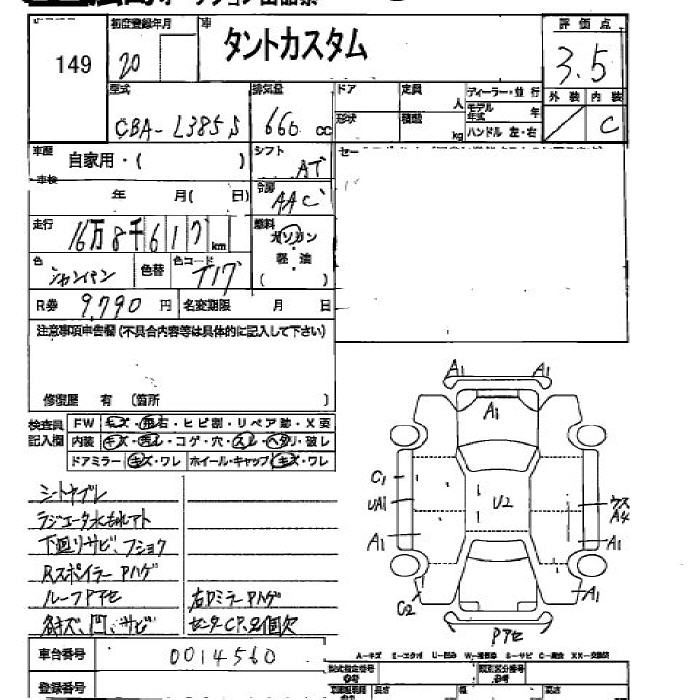 149
初度登録年月
20
車
タントカスタム
評価点
3.5
外装 内装
C
型式
CBA-L385S
排気量
660 cc
ドア
定員
人
形状
積載
kg
ディーラー・並行
モデル年式 年
ハンドル 左・右
車歴
自家用・( )
シフト
AT
車検
年 月( 日)
冷房
AAC
走行
16万8千617 km
燃料
ガソリン
軽油
( )
色
シャンパン
色替
色コード
T17
R券 9,790 円
名変期限 月 日
注意事項申告欄(不具合内容等は具体的に記入して下さい)
修復歴 有 〔箇所 〕
検査員記入欄
FW キズ・飛石・ヒビ割・リペア跡・X要
内装 キズ・汚れ・コゲ・穴・スレ・ヘタリ・破レ
ドアミラー キズ・ワレ ホイール・キャップ キズ・ワレ
シートヤブレ
ラジエータ水もれアト
下回リサビ、フショク
RスポイラーPハゲ
ルーフPアセ
右DミラーPハゲ
各キズ、凹、サビ
センターCP、2個欠
車台番号
0014560
登録番号
A1
A1
A1
C1
UA1
A1
C2
U2
ウスA4
A1
A1
Pアセ
A-キズ